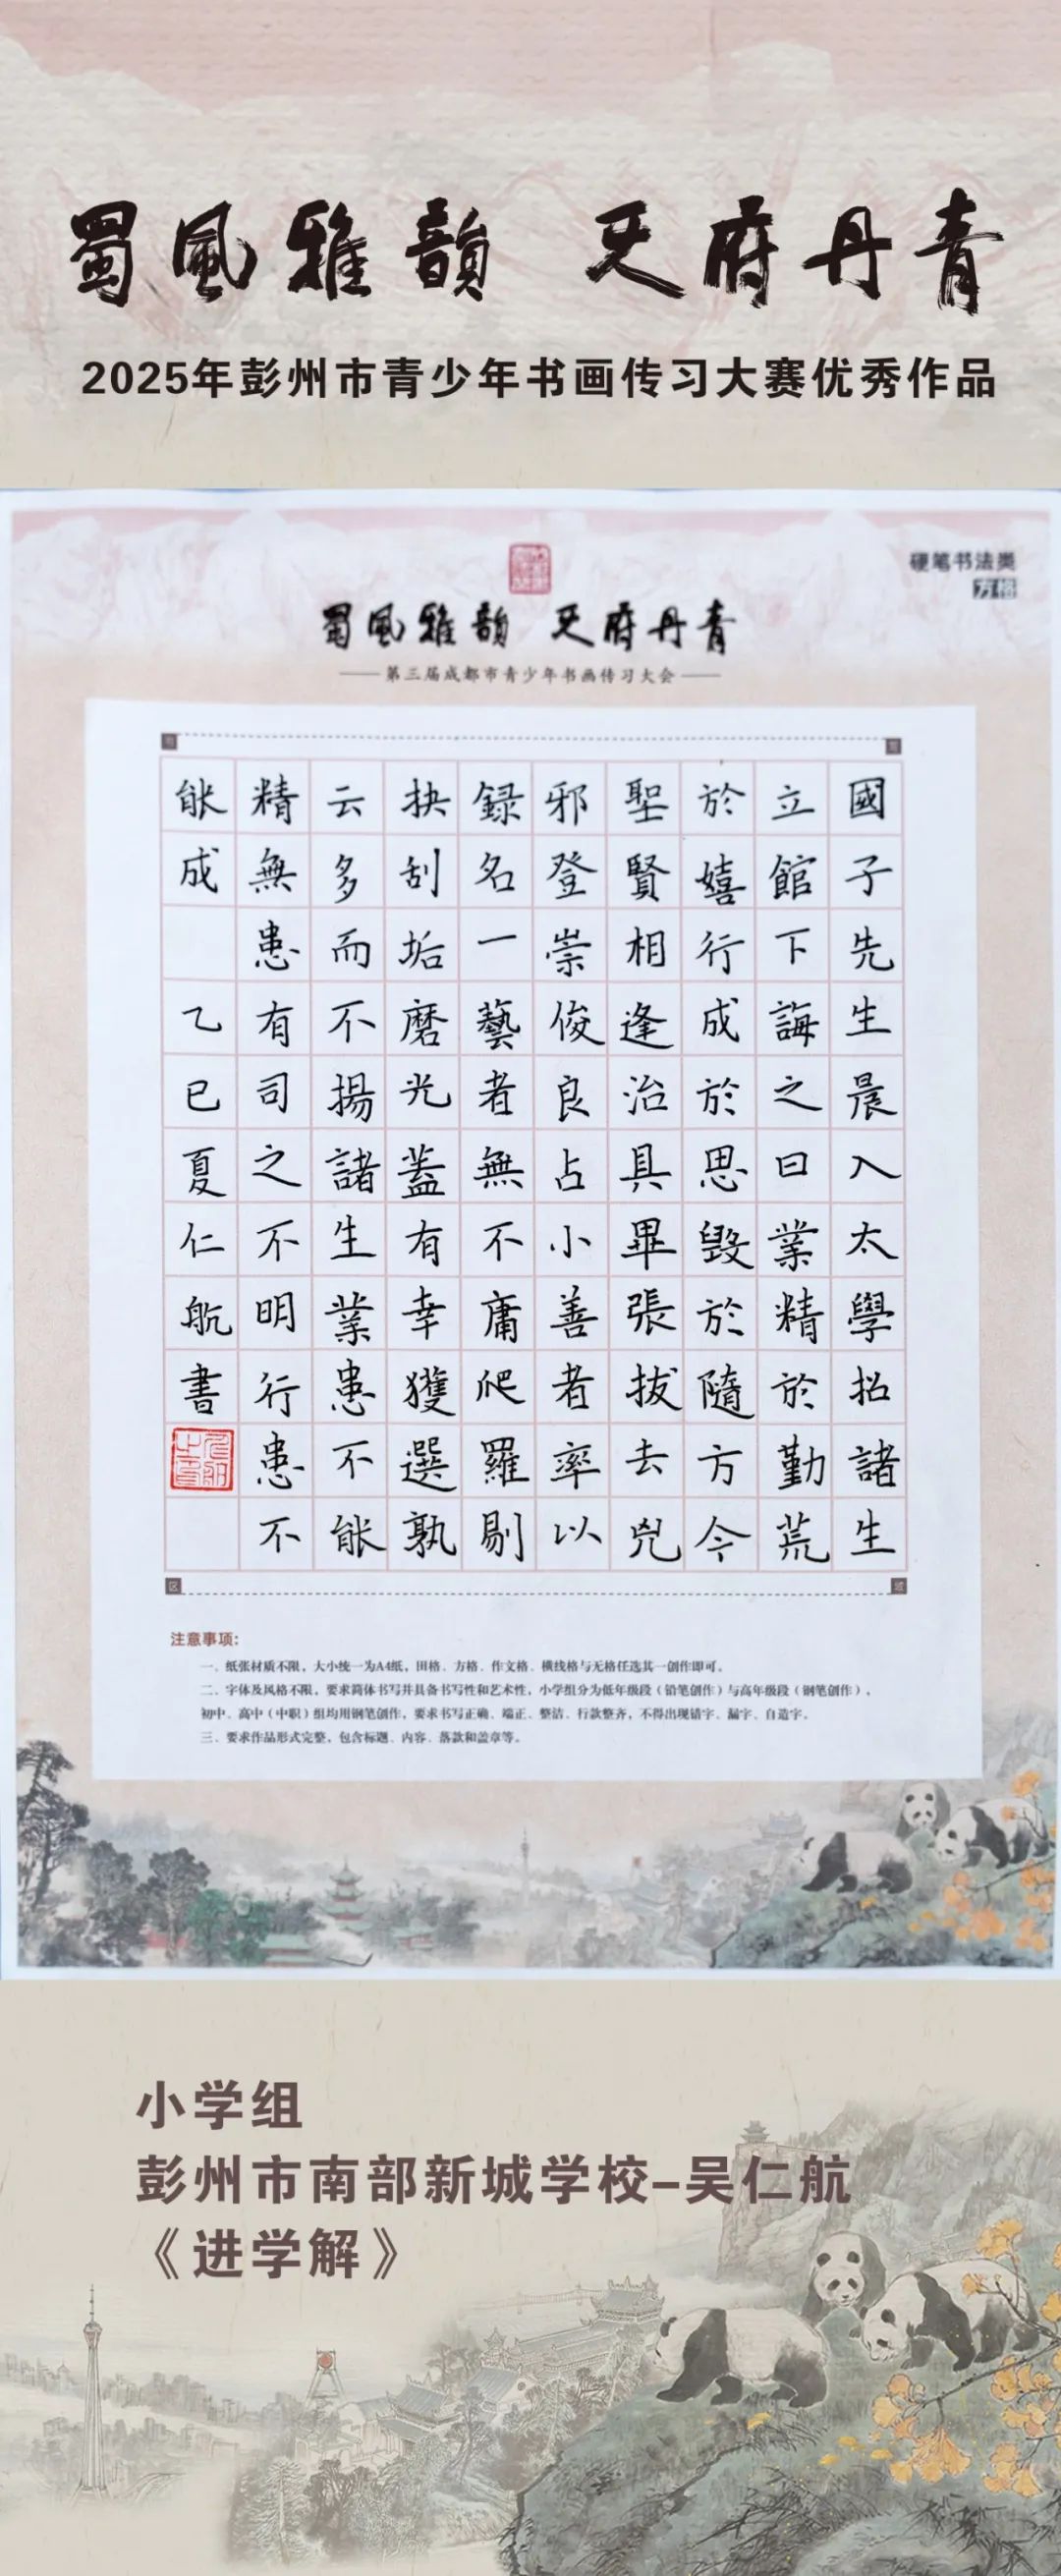 蜀風雅韻 天府丹青
2025年彭州市青少年书画传习大赛优秀作品
硬笔书法类
方格
蜀風雅韻 天府丹青
第三届成都市青少年书画传习大会
國子先生晨入太學招諸生
立館下誨之曰業精於勤荒
於嬉行成於思毀於隨方今
聖賢相逢治具畢張拔去兇
邪登崇俊良占小善者率以
録名一藝者無不庸爬羅剔
抉刮垢磨光蓋有幸獲選孰
云多而不揚諸生業患不能
精無患有司之不明行患不
能成 乙巳夏仁航書
区 域
注意事项:
一、纸张材质不限，大小统一为A4纸，田格、方格、作文格、横线格与无格任选其一创作即可。
二、字体及风格不限，要求简体书写并具备书写性和艺术性，小学组分为低年级段（铅笔创作）与高年级段（钢笔创作），
初中、高中（中职）组均用钢笔创作，要求书写正确、端正、整洁、行款整齐，不得出现错字、漏字、自造字。
三、要求作品形式完整，包含标题、内容、落款和盖章等。
小学组
彭州市南部新城学校-吴仁航
《进学解》